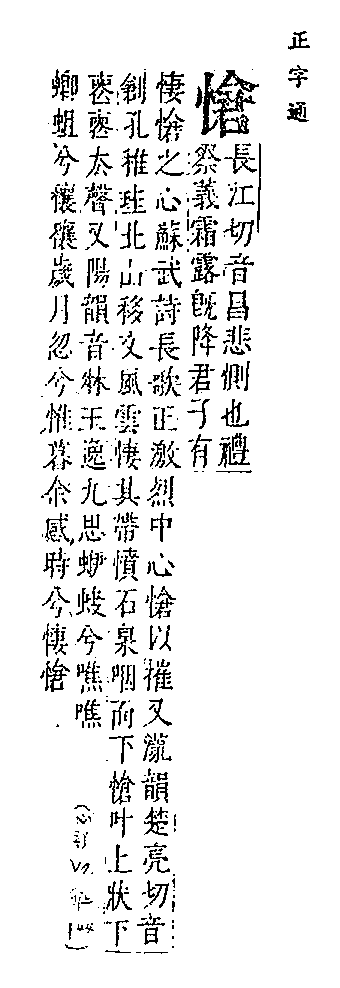 正字通
愴
長江切音昌悲惻也禮
祭義霜露旣降君子有
悽愴之心蘇武詩長歌正激烈中心愴以摧又漾韻楚亮切音
剙孔稚珪北山移文風雲悽其帶憤石泉咽而下愴叶上狀下
喪喪去聲又陽韻音牀王逸九思蛜蚗兮噍噍
蝍蛆兮穰穰歲月忽兮惟暮余感時兮悽愴